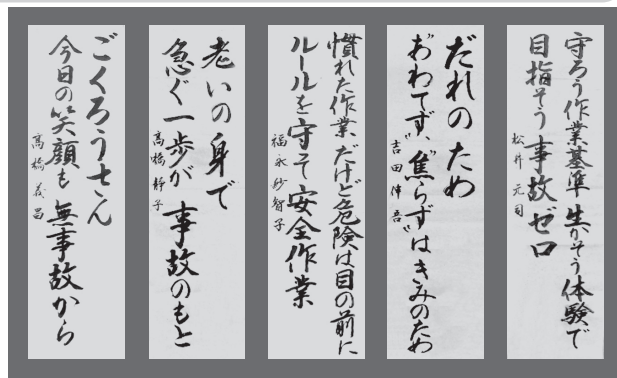 守ろう作業基準 生かそう体験で
目指そう事故ゼロ
松井元司
だれのため
あわてず、焦らず"はきみのため
吉田伸吾
慣れた作業だけど危険は目の前に
ルールを守って安全作業
福永紗智子
老いの身で
急ぐ一歩が 事故のもと
高橋静子
ごくろうさん
今日の笑顔も 無事故から
高橋義昌